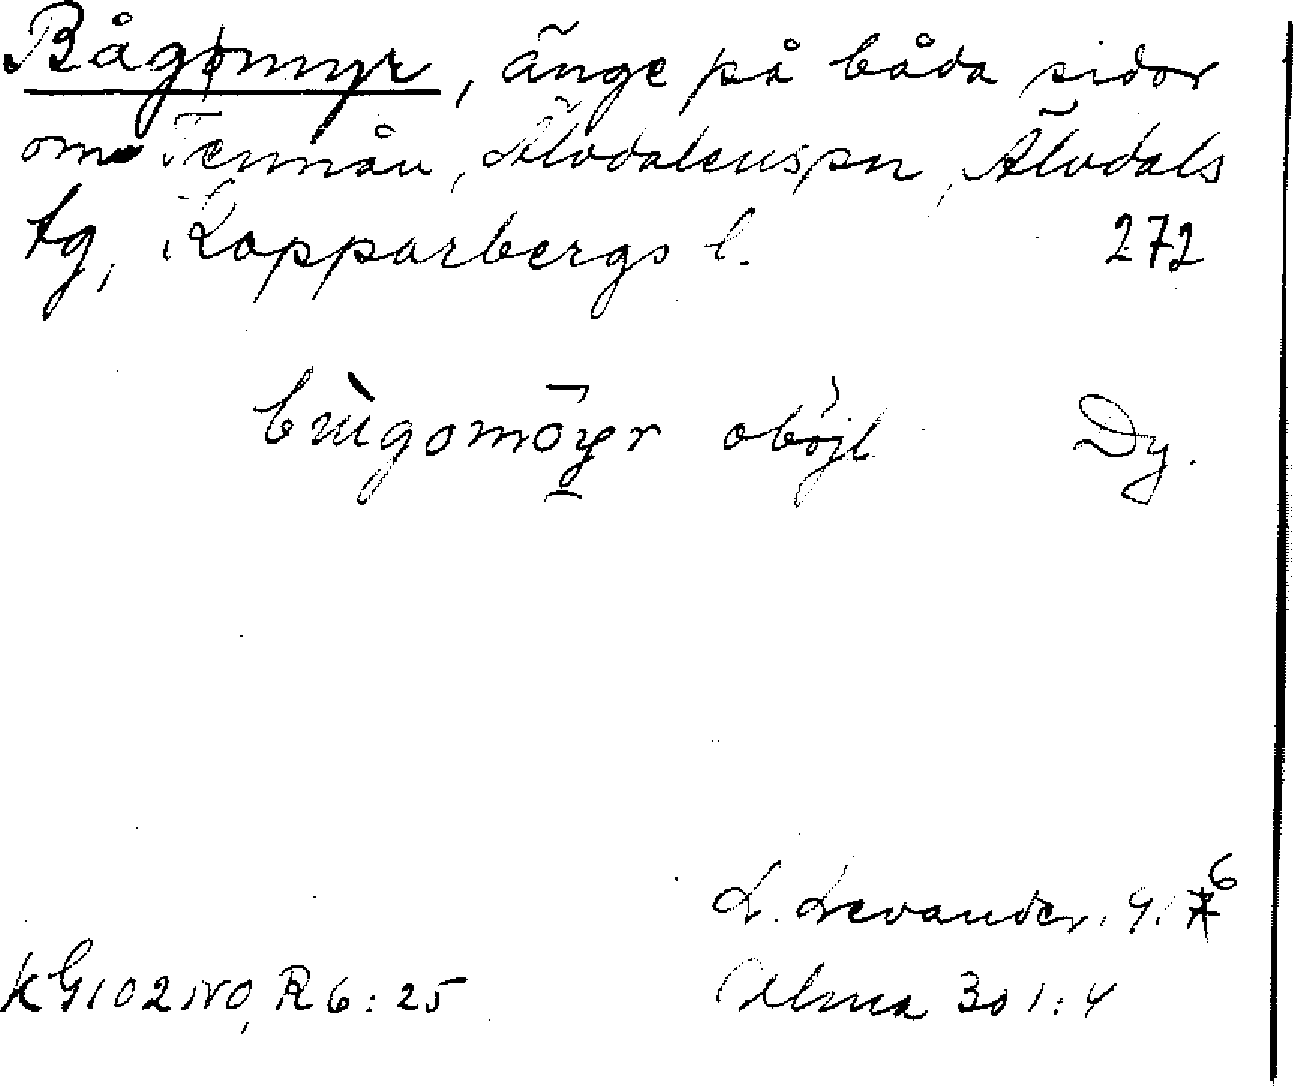 Bågomyr, änge på båda sidor
om Tennån, Älvdalens sn, Älvdals
tg, Kopparbergs l. 272
oböjl Dy.
L. Levander. 9. 6
KG 102 NO, R 6: 25 Ulma 301: 4